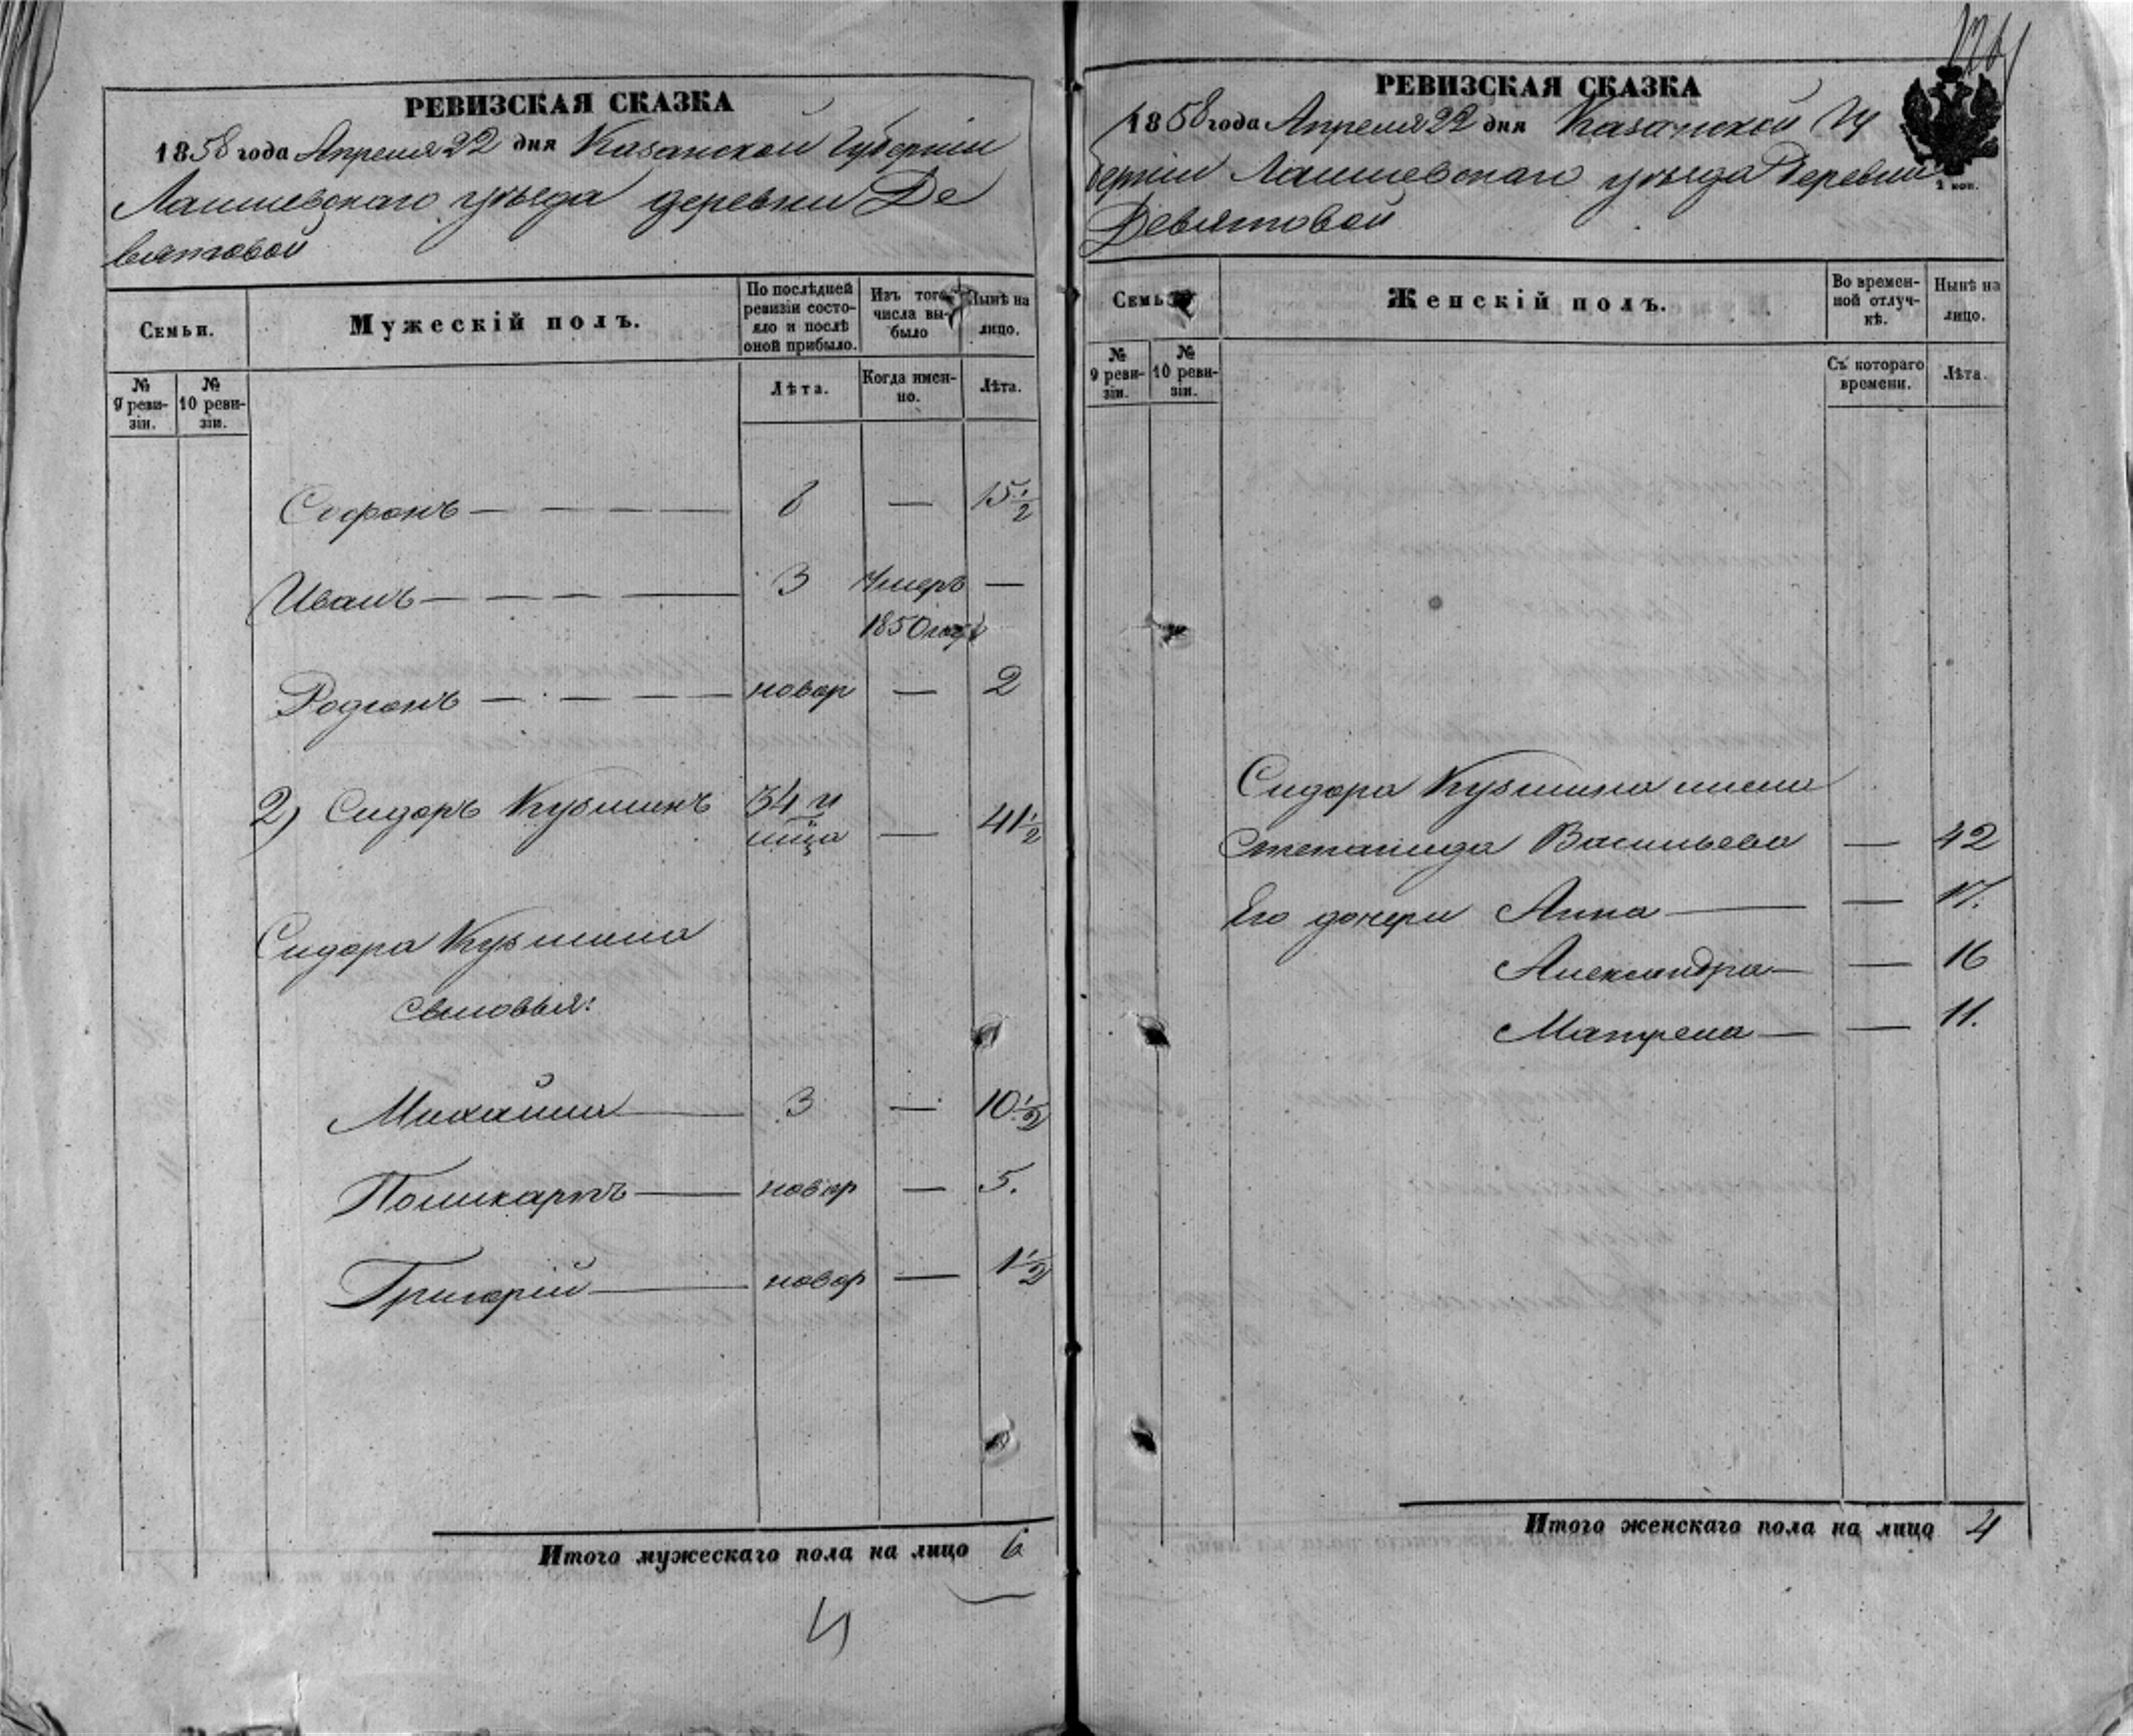 РЕВИЗСКАЯ СКАЗКА
1858 года Апреля 22 дня Казанской Губерніи
Лаишевскаго уѣзда деревни Де
вятовой
Семьи.
Мужескій полъ.
По послѣдней ревизіи состояло и послѣ оной прибыло.
Изъ того числа выбыло
Нынѣ на лицо.
№ 9 ревизіи.
№ 10 ревизіи.
Лѣта.
Когда именно.
Лѣта.
Софронъ — — — — 8 — 15½
Иванъ — — — — 3 Умеръ —
1850 году
Родіонъ — — — — новор — 2
2) Сидоръ Кузминъ 34 и — 41½
Сидора Кузмина
сыновья:
Михайла — 3 — 10½
Поликарпъ — новор — 5.
Григорій — новор — 1½
Итого мужескаго пола на лицо 6
РЕВИЗСКАЯ СКАЗКА
1858 года Апреля 22 дня Казанской Гу
берніи Лаишевскаго уѣзда Деревни
Девятовой
2 коп.
Семьи.
Женскій полъ.
Во временной отлучкѣ.
Нынѣ на лицо.
№ 9 ревизіи.
№ 10 ревизіи.
Съ котораго времени.
Лѣта.
Сидора Кузмина жена
Степанида Васильева — 42
Его дочери Анна — — 17.
Александра — — 16
Матрена — — 11.
Итого женскаго пола на лицо 4